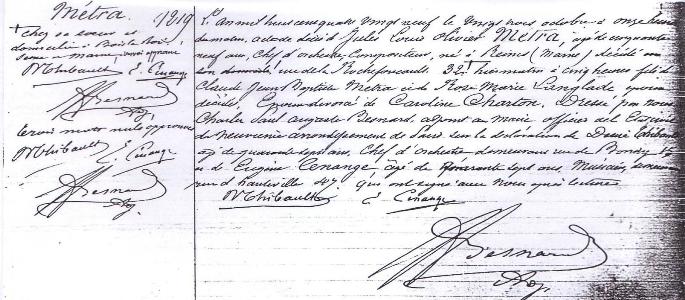 Métra. 1219
+ chez sa soeur et
domicilié à Bois le Roi
approuvé
D Thibault É. Cénange
Bernard
Adj.
trois mots nuls approuvés
D Thibault É. Cénange
Bernard
Adj.
L'an mil huit cent quatre vingt neuf le vingt octobre à onze heures
du matin, acte de décès de Jules Louis Olivier Métra, âgé de cinquante
neuf ans, Chef d'orchestre Compositeur, né à Reims (Marne) décédé en
son domicile, rue de la Rochefoucault, 32 + hier matin à cinq heures, fils de
Claude Jean Baptiste Métra et de Rose Marie Langlade, époux
décédés, Époux divorcé de Caroline Charton, Dressé par nous
Charles Paul Auguste Bernard, adjoint au maire officier de l'État civil
du neuvième arrondissement de Paris sur la déclaration de Thibault
âgé de quarante sept ans, Chef d'orchestre demeurant rue de Bondy
et de Eugène Cénange, âgé de quarante sept ans, Musicien, demeurant
rue d'hauteville 47 qui ont signé avec Nous après lecture
D Thibault É Cénange
Bernard
Adj.